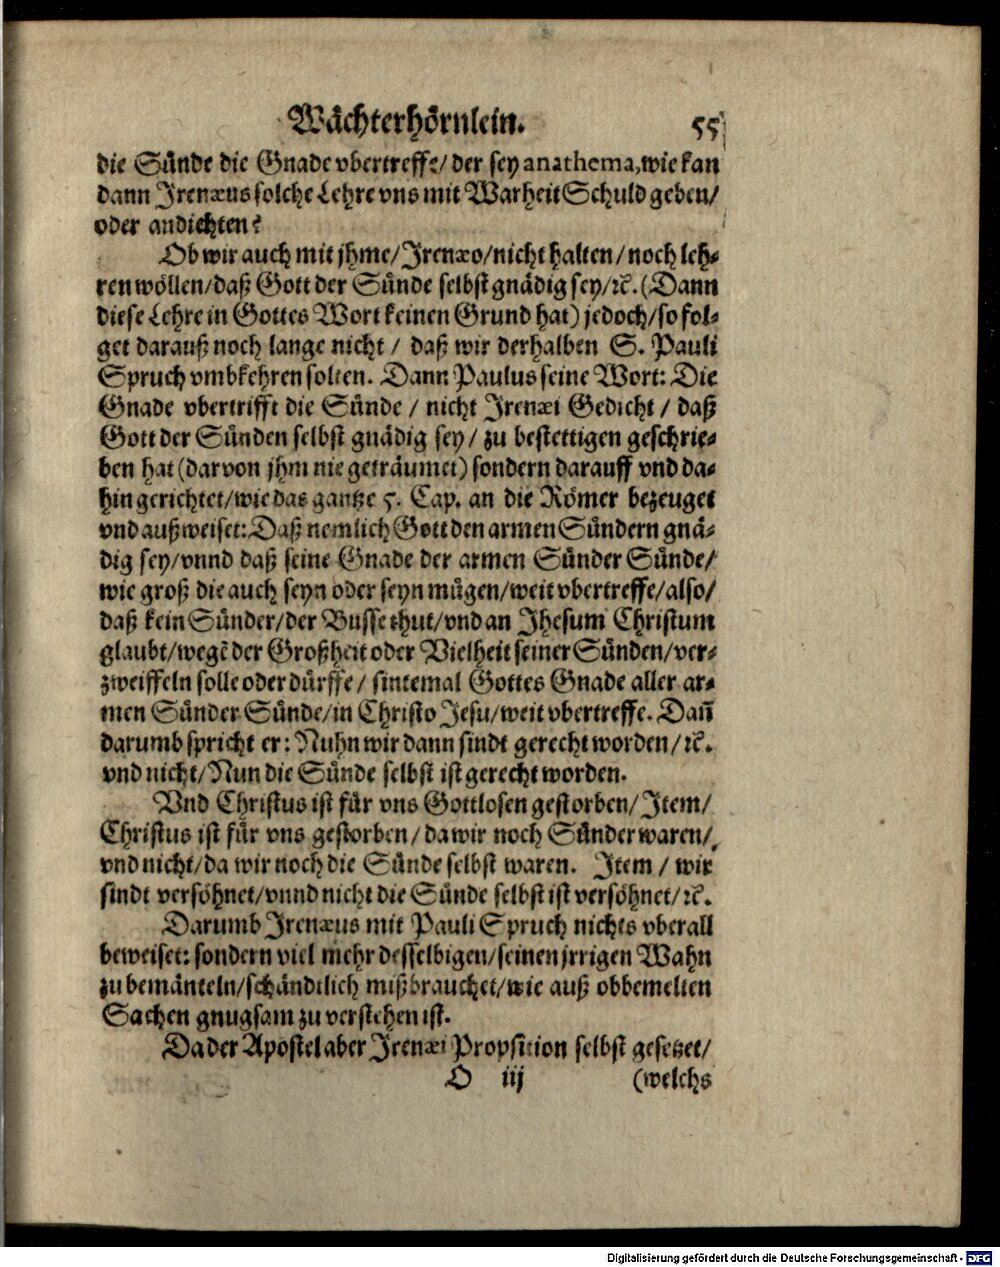 Wächterhörnlein. 55
die Sünde die Gnade vbertreffe/ der sey anathema, wie kan
dann Irenæus solche Lehre vns mit Warheit Schuld geben/
oder andichten?
Ob wir auch mit jhme/ Irenæo/ nicht halten/ noch leh-
ren wöllen/ daß Gott der Sünde selbst gnädig sey/ ꝛc. (Dann
diese Lehre in Gottes Wort keinen Grund hat) jedoch/ so fol-
get darauß noch lange nicht/ daß wir derhalben S. Pauli
Spruch vmbkehren solten. Dann Paulus seine Wort: Die
Gnade vbertrifft die Sünde/ nicht Irenæi Gedicht/ daß
Gott der Sünden selbst gnädig sey/ zu bestettigen geschrie-
ben hat (darvon jhm nie geträumet) sondern darauff vnd da-
hin gerichtet/ wie das gantze 5. Cap. an die Römer bezeuget
vnd außweiset: Daß nemlich Gott den armen Sündern gnä-
dig sey/ vnnd daß seine Gnade der armen Sünder Sünde/
wie groß die auch seyn oder seyn mügen/ weit vbertreffe/ also/
daß kein Sünder/ der Busse thut/ vnd an Jhesum Christum
glaubt/ wegẽ der Großheit oder Vielheit seiner Sünden/ ver-
zweiffeln solle oder dürffe/ sintemal Gottes Gnade aller ar-
men Sünder Sünde/ in Christo Jesu/ weit vbertreffe. Dañ
darumb spricht er: Nuhn wir dann sindt gerecht worden/ ꝛc.
vnd nicht/ Nun die Sünde selbst ist gerecht worden.
Vnd Christus ist für vns Gottlosen gestorben/ Item/
Christus ist für vns gestorben/ da wir noch Sünder waren/
vnd nicht/ da wir noch die Sünde selbst waren. Item/ wir
sindt versöhnet/ vnnd nicht die Sünde selbst ist versöhnet/ ꝛc.
Darumb Irenæus mit Pauli Spruch nichts vberall
beweiset: sondern viel mehr desselbigen/ seinen jrrigen Wahn
zu bemänteln/ schändtlich mißbrauchet/ wie auß obbemelten
Sachen gnugsam zu verstehen ist.
Da der Apostel aber Irenæi Proposition selbst gesetzet/
O iij (welchs
Digitalisierung gefördert durch die Deutsche Forschungsgemeinschaft - DFG